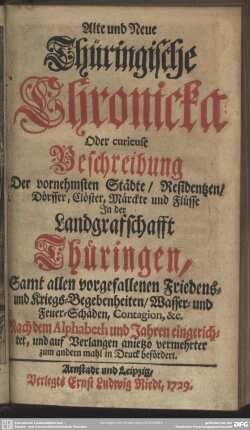 Alte und Neue
Thüringische
Chronicka
Oder curieuse
Beschreibung
Der vornehmsten Städte/ Residentzen/
Dörffer, Clöster, Märckte und Flüsse
In der
Landgrafschafft
Thüringen,
Samt allen vorgefallenen Friedens-
und Kriegs-Begebenheiten/ Wasser- und
Feuer-Schäden, Contagion, &c.
Nach dem Alphabeth und Jahren eingerich-
tet, und auf Verlangen anietzo vermehrter
zum andern mahl in Druck befördert.
Arnstadt und Leipzig,
Verlegts Ernst Ludwig Niedt, 1729.